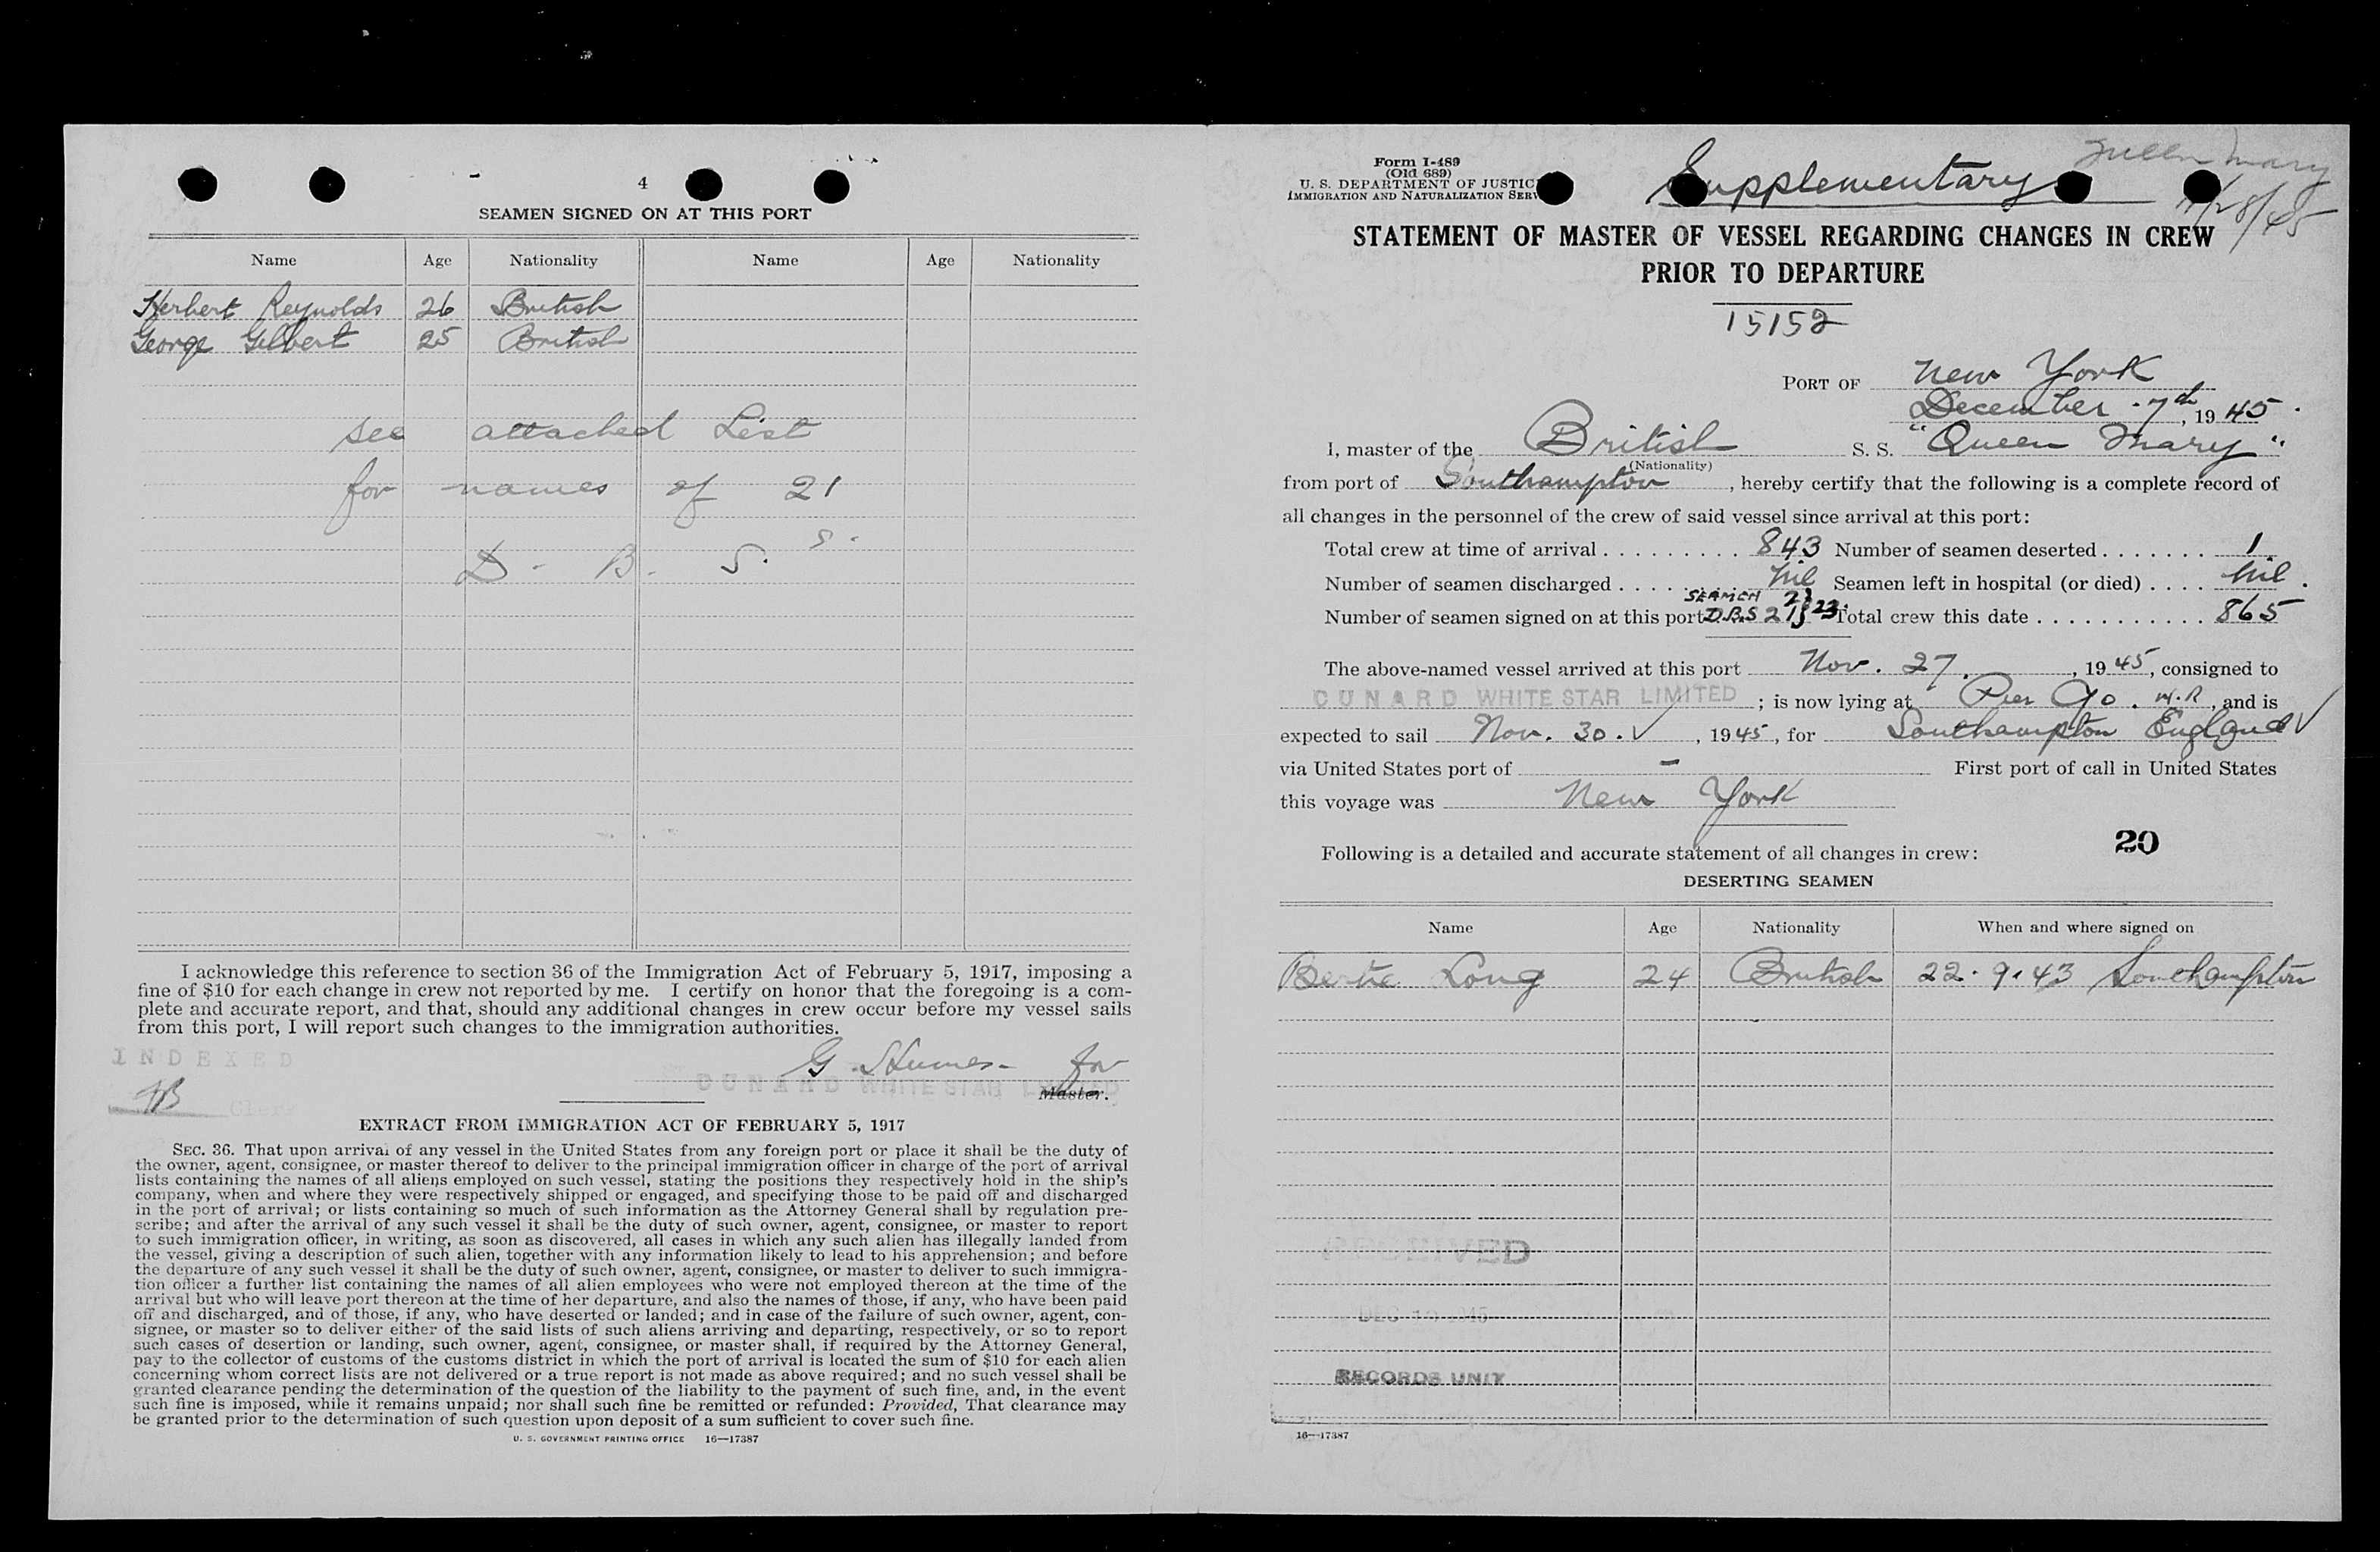 4
SEAMEN SIGNED ON AT THIS PORT
Name Age Nationality Name Age Nationality
Herbert Reynolds 26 British
George Gilbert 25 British
see attached List
for names of 21
D. B. S. s.
I acknowledge this reference to section 36 of the Immigration Act of February 5, 1917, imposing a
fine of $10 for each change in crew not reported by me. I certify on honor that the foregoing is a com-
plete and accurate report, and that, should any additional changes in crew occur before my vessel sails
from this port, I will report such changes to the immigration authorities.
INDEXED
G. for
CUNARD WHITE STAR LIMITED
Master.
Clerk
EXTRACT FROM IMMIGRATION ACT OF FEBRUARY 5, 1917
SEC. 36. That upon arrival of any vessel in the United States from any foreign port or place it shall be the duty of
the owner, agent, consignee, or master thereof to deliver to the principal immigration officer in charge of the port of arrival
lists containing the names of all aliens employed on such vessel, stating the positions they respectively hold in the ship's
company, when and where they were respectively shipped or engaged, and specifying those to be paid off and discharged
in the port of arrival; or lists containing so much of such information as the Attorney General shall by regulation pre-
scribe; and after the arrival of any such vessel it shall be the duty of such owner, agent, consignee, or master to report
to such immigration officer, in writing, as soon as discovered, all cases in which any such alien has illegally landed from
the vessel, giving a description of such alien, together with any information likely to lead to his apprehension; and before
the departure of any such vessel it shall be the duty of such owner, agent, consignee, or master to deliver to such immigra-
tion officer a further list containing the names of all alien employees who were not employed thereon at the time of the
arrival but who will leave port thereon at the time of her departure, and also the names of those, if any, who have been paid
off and discharged, and of those, if any, who have deserted or landed; and in case of the failure of such owner, agent, con-
signee, or master so to deliver either of the said lists of such aliens arriving and departing, respectively, or so to report
such cases of desertion or landing, such owner, agent, consignee, or master shall, if required by the Attorney General,
pay to the collector of customs of the customs district in which the port of arrival is located the sum of $10 for each alien
concerning whom correct lists are not delivered or a true report is not made as above required; and no such vessel shall be
granted clearance pending the determination of the question of the liability to the payment of such fine, and, in the event
such fine is imposed, while it remains unpaid; nor shall such fine be remitted or refunded: Provided, That clearance may
be granted prior to the determination of such question upon deposit of a sum sufficient to cover such fine.
U. S. GOVERNMENT PRINTING OFFICE 16—17387
Form I-489
(Old 689)
U. S. DEPARTMENT OF JUSTIC
IMMIGRATION AND NATURALIZATION SERV
Supplementary
Queen Mary
11/28/45
STATEMENT OF MASTER OF VESSEL REGARDING CHANGES IN CREW
PRIOR TO DEPARTURE
15152
PORT OF New York
December 7th, 1945.
I, master of the British S. S. "Queen Mary"
(Nationality)
from port of Southampton, hereby certify that the following is a complete record of
all changes in the personnel of the crew of said vessel since arrival at this port:
Total crew at time of arrival . . . . . . . . . 843 Number of seamen deserted . . . . . . . 1.
Number of seamen discharged . . . . . . . . Nil Seamen left in hospital (or died) . . . . Nil.
SEAMEN 2
Number of seamen signed on at this port D.B.S 21 } 23 Total crew this date . . . . . . . . . . . 865
The above-named vessel arrived at this port Nov. 27, 1945, consigned to
CUNARD WHITE STAR LIMITED; is now lying at Pier 90. N.R, and is
expected to sail Nov. 30. ✓, 1945, for Southampton England ✓
via United States port of - First port of call in United States
this voyage was New York
20
Following is a detailed and accurate statement of all changes in crew:
DESERTING SEAMEN
Name Age Nationality When and where signed on
Bertie Long 24 British 22. 9. 43 Southampton
RECEIVED
DEC 1945
RECORDS UNIT
16—17387